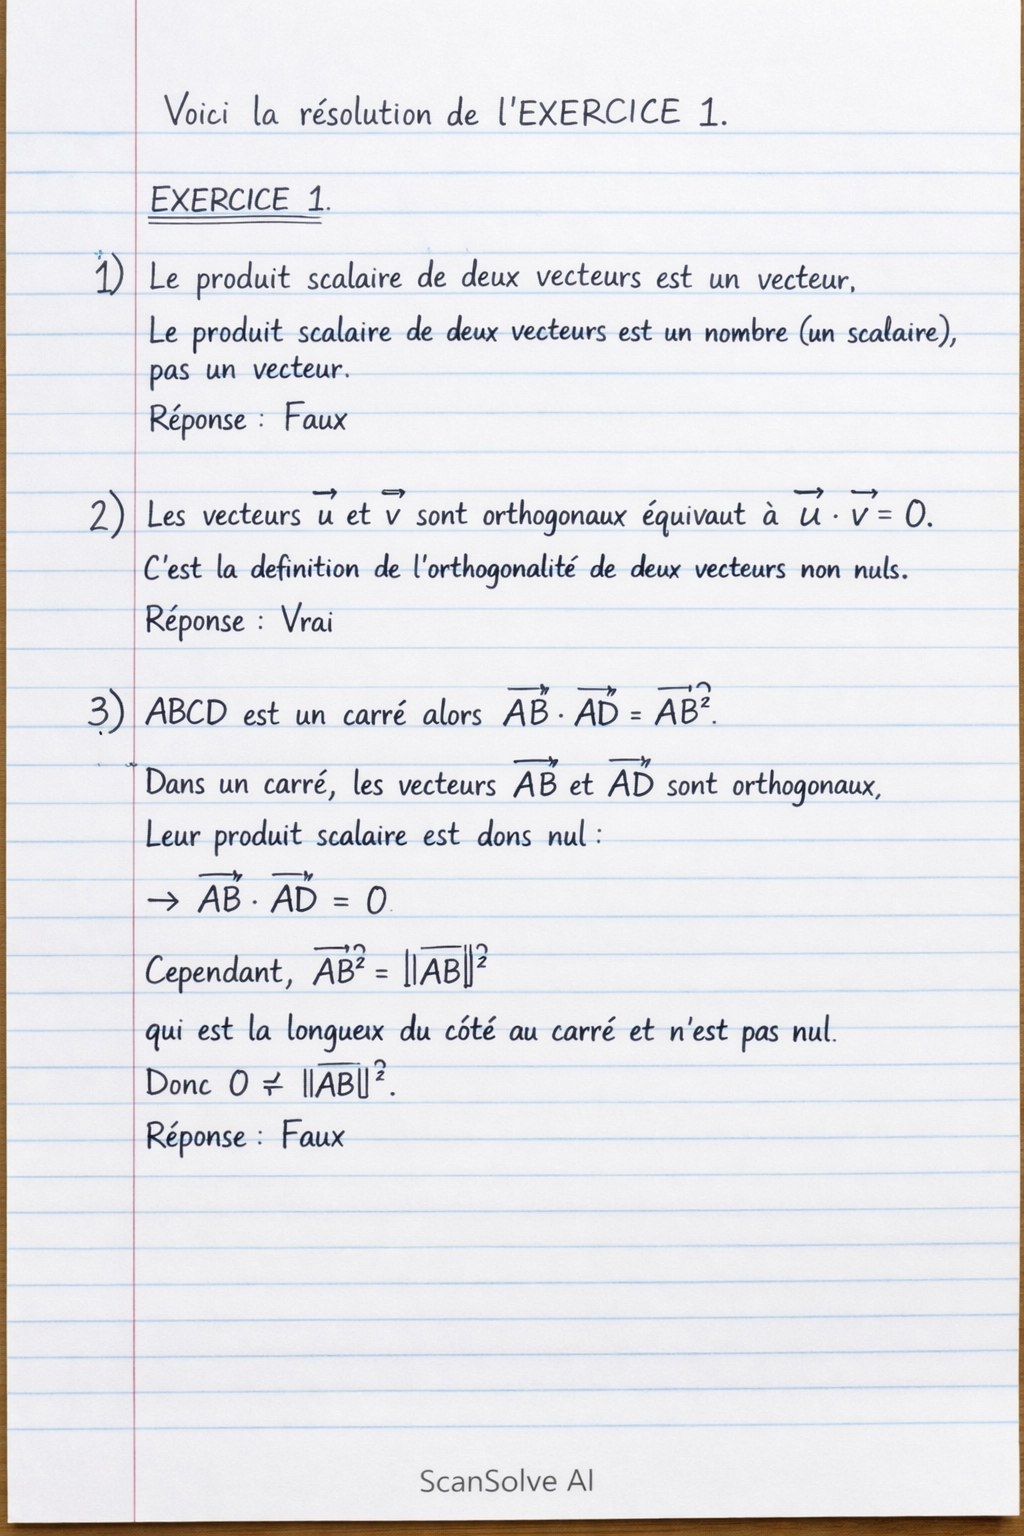 Voici la résolution de l'EXERCICE 1.
EXERCICE 1.
1) Le produit scalaire de deux vecteurs est un vecteur.
Le produit scalaire de deux vecteurs est un nombre (un scalaire),
pas un vecteur.
Réponse : Faux
2) Les vecteurs \vec{u} et \vec{v} sont orthogonaux équivaut à \vec{u} · \vec{v} = 0.
C'est la definition de l'orthogonalité de deux vecteurs non nuls.
Réponse : Vrai
3) ABCD est un carré alors \overrightarrow{AB} · \overrightarrow{AD} = \overrightarrow{AB}².
Dans un carré, les vecteurs \overrightarrow{AB} et \overrightarrow{AD} sont orthogonaux,
Leur produit scalaire est dons nul :
→ \overrightarrow{AB} · \overrightarrow{AD} = 0
Cependant, \overrightarrow{AB}² = ||\overline{AB}||²
qui est la longueux du côté au carré et n'est pas nul.
Donc 0 ≠ ||\overline{AB}||².
Réponse : Faux
ScanSolve AI